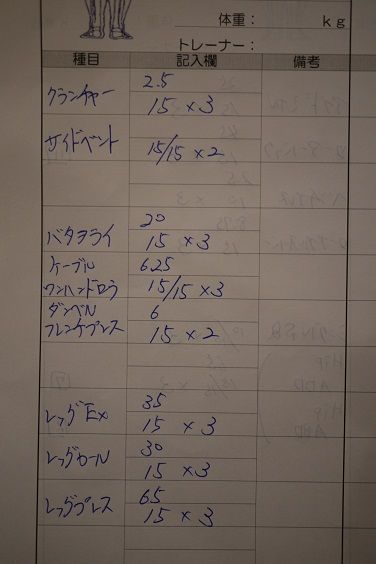 体重： kg
トレーナー：
種目 記入欄 備考
クランチャー 2.5
15 × 3
サイドベント 15/15 × 2
バタフライ 20
15 × 3
ケーブル 6.25
ワンハンドロウ 15/15 × 3
ダンベル 6
フレンチプレス 15 × 2
レッグEx 35
15 × 3
レッグカール 30
15 × 3
レッグプレス 65
15 × 3